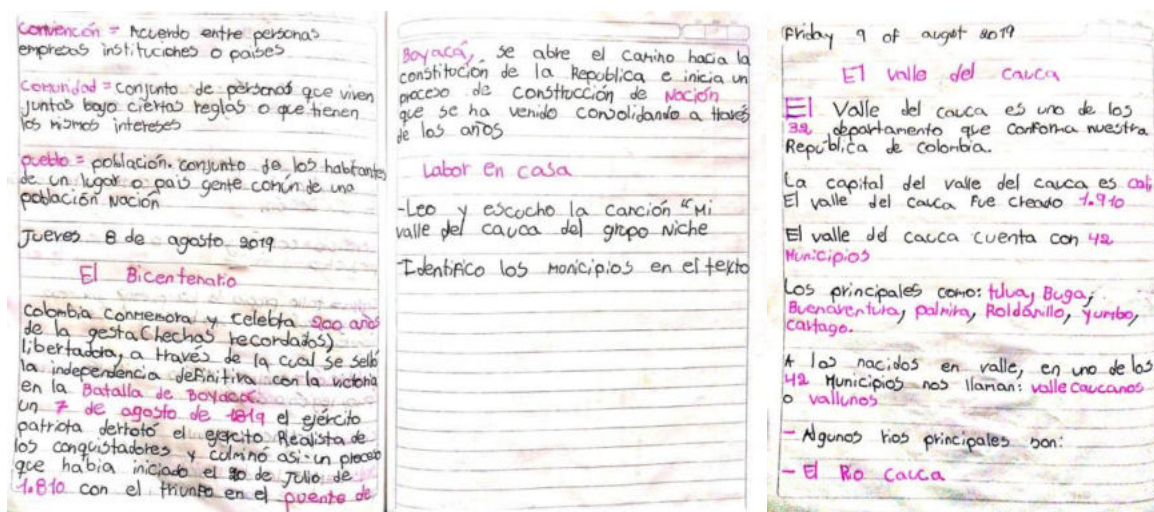 Convención = Acuerdo entre personas
empresas instituciones o paises
Comunidad = conjunto de personas que viven
juntas bajo ciertas reglas o que tienen
los mismos intereses
pueblo = población. conjunto de los habitantes
de un lugar o pais gente común de una
población Nación
Jueves 8 de agosto 2019
El Bicentenario
Colombia conmemora y celebra 200 años
de la gesta (hechos recordados)
libertadora, a través de la cual se selló
la independencia definitiva con la victoria
en la Batalla de Boyacá.
un 7 de agosto de 1819 el ejército
patriota derrotó el ejercito Realista de
los conquistadores y culminó asi un proceso
que habia iniciado el 20 de Julio de
1.810 con el triunfo en el puente de
Boyacá, se abre el camino hacia la
constitución de la Republica e inicia un
proceso de construcción de Nación
que se ha venido consolidando a través
de los años
Labor en casa
-Leo y escucho la canción "Mi
valle del cauca del grupo Niche
-Identifico los monicipios en el texto
Friday 9 of augst 2019
El valle del cauca
El Valle del cauca es uno de los
32 departamento que conforma nuestra
República de colombia.
La capital del valle del cauca es cali
El valle del cauca fue creado 1.910
El valle del cauca cuenta con 42
Municipios
Los principales como: tulua, Buga,
Buenaventura, palmira, Roldanillo, yumbo,
cartago.
A los nacidos en valle, en uno de los
42 Municipios nos llaman: valle caucanos
o vallunos
- Algunos rios principales son:
- El Rio Cauca